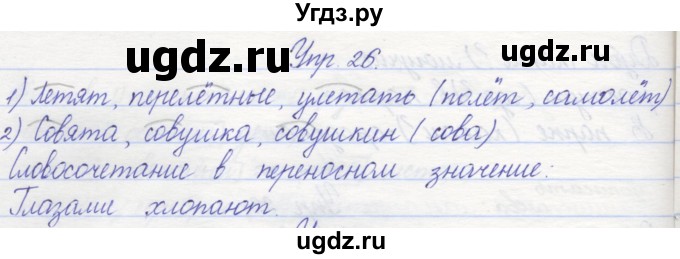 Угдз.ру
ugdz.ru ugdz.ru
Упр. 26.
1) Летят, перелётные, улетать (полёт, самолёт)
2) Совята, совушка, совушкин (сова)
Словосочетание в переносном значение:
Глазами хлопают.
ugdz.ru ugdz.ru
ugdz.ru